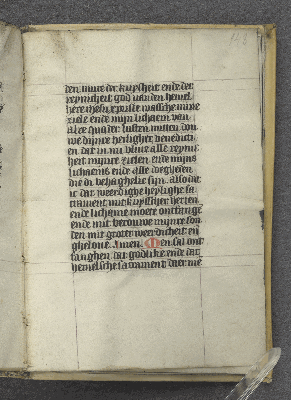 den minre der kuyscheit ende der
reynicheit god van den hemel
here ihesu xpriste wassche mine
ziele ende mijn lichaem van
alre quader lusten mitten dou
we dijnre heiligher benedicti
en dat in mi blive alle reyni
heit mijnre zielen ende mijns
lichaems ende alle doegheden
die di behaghelic sijn also dat
ic dat weerdighe heylighe sa
crament mit kuysscher herten
ende lichame moete ontfange
ende mit berouwe mijnre son
den mit groter weerdicheit en
ghelove. Amen. Men sal ont
fanghen dat godlike ende dat
hemelsche sacrament daer me